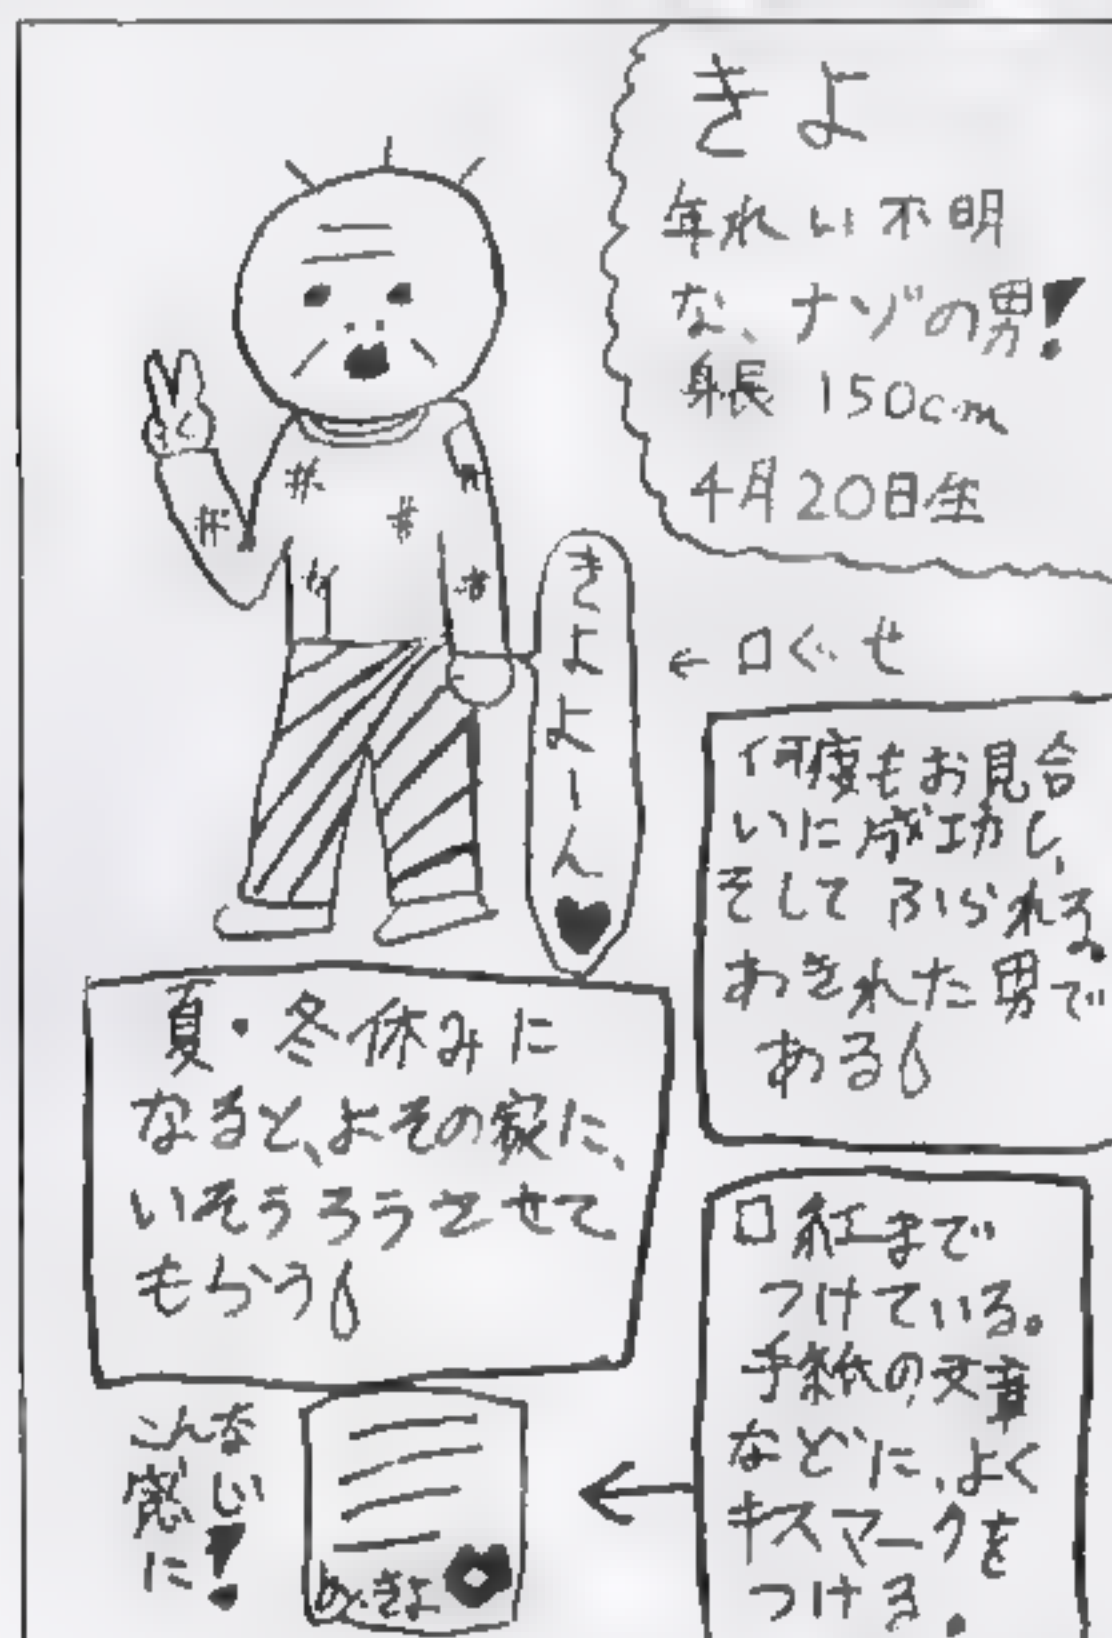 きよ
年れい不明
な、ナゾの男!
身長 150cm
4月20日生
きよよーん♥
← 口ぐせ
何度もお見合
いに成功し、
そして ふられる。
あきれた男で
ある
夏・冬休みに
なると、よその家に、
いそうろうさせて
もらう
口紅まで
つけている。
手紙の文章
などに、よく
キスマークを
つける。
こんな
感じに!
by.きよ